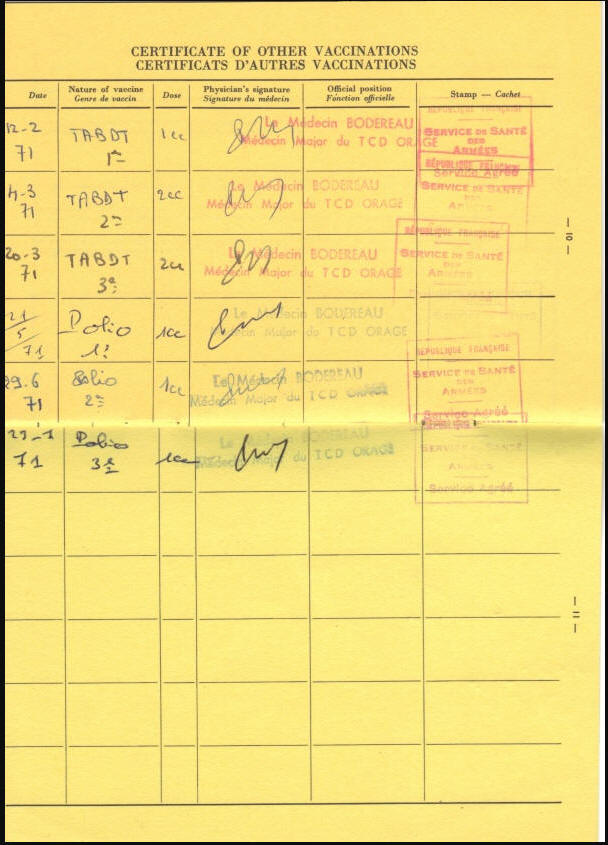 CERTIFICATE OF OTHER VACCINATIONS
CERTIFICATS D'AUTRES VACCINATIONS
Date
Nature of vaccine
Genre de vaccin
Dose
Physician's signature
Signature du médecin
Official position
Fonction officielle
Stamp — Cachet
12-2
71
TABDT
1e
1cc
Le Médecin BODEREAU
Médecin Major du TCD ORAGE
RÉPUBLIQUE FRANÇAISE
SERVICE DE SANTÉ
DES
ARMÉES
Service Agréé
71
TABDT
2e
2cc
Le Médecin BODEREAU
Médecin Major du TCD ORAGE
RÉPUBLIQUE FRANÇAISE
SERVICE DE SANTÉ
DES
ARMÉES
20-3
71
TABDT
3e
2cc
Le Médecin BODEREAU
Médecin Major du TCD ORAGE
RÉPUBLIQUE FRANÇAISE
SERVICE DE SANTÉ
DES
ARMÉES
21
5
71
Polio
1e
1cc
Le Médecin BODEREAU
Médecin Major du TCD ORAGE
29.6
71
Polio
2e
1cc
Le Médecin BODEREAU
Médecin Major du TCD ORAGE
RÉPUBLIQUE FRANÇAISE
SERVICE DE SANTÉ
DES
ARMÉES
Service Agréé
71
Polio
3e
1cc
Le Médecin BODEREAU
Médecin Major du TCD ORAGE
RÉPUBLIQUE FRANÇAISE
SERVICE DE SANTÉ
DES
ARMÉES
Service Agréé
— 10 —
— 11 —